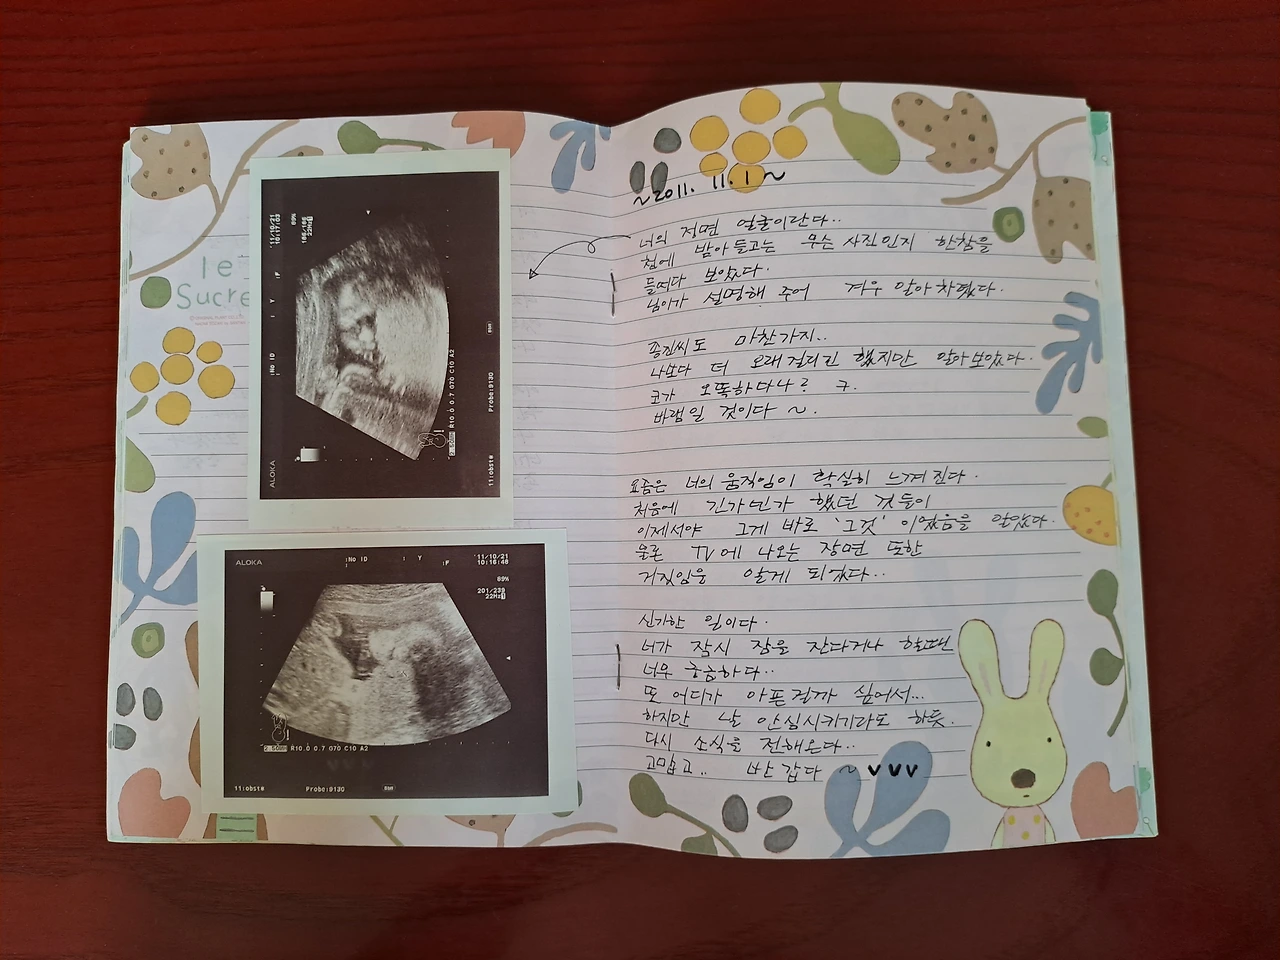 le
Sucre
'11/10/21
10:17:03
89%
166/166
22Hz
:No ID
: Y
:F
ALOKA
2.50MH R10.0 0.7 070 C10 A2
Probe:9130
11:obst#
ALOKA
:No ID
: Y
:F
'11/10/21
10:16:46
89%
201/239
22Hz
R10.0 0.7 070 C10 A2
11:obst#
Probe:9130
~2011. 11. 1 ~
너의 저면 얼굴이란다..
첨에 받아들고는 무슨 사진인지 한참을
들여다 보았다.
님아가 설명해 주어 겨우 알아차렸다.
종진씨도 마찬가지..
나보다 더 오래걸리긴 했지만 알아보았다.
코가 오똑하다나? ㅋ.
바램일 것이다 ~.
요즘은 너의 움직임이 확실히 느껴진다.
처음에 긴가민가 했던 것들이
이제서야 그게 바로 '그것' 이었음을 알았다.
물론 TV에 나오는 장면 또한
거짓임을 알게 되었다..
신기한 일이다.
너가 잠시 잠을 잔다거나 할때면
너무 궁금하다..
또 어디가 아픈걸까 싶어서...
하지만 날 안심시키기라도 하듯.
다시 소식을 전해온다..
고맙고.. 반갑다 ~ ♥♥♥